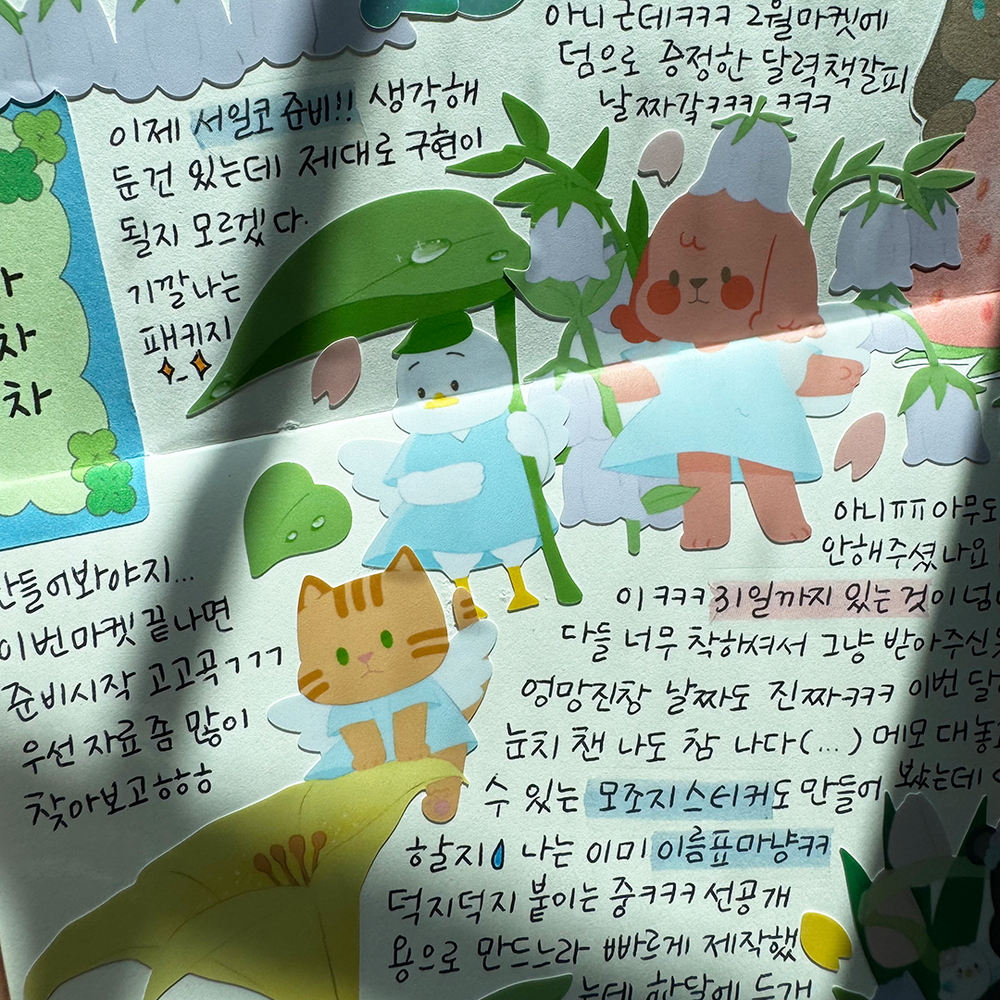 이제 서일코 준비!! 생각해
둔건 있는데 제대로 구현이
될지 모르겠다.
기깔나는
패키지
아니 근데ㅋㅋㅋ 2월마켓에
덤으로 증정한 달력책갈피
날짜감ㅋㅋㅋ ㅋㅋㅋ
차
차
만들어봐야지...
이번마켓 끝나면
준비시작 고고곡ㄱㄱㄱ
우선 자료좀 많이
찾아보고ㅎㅎㅎ
아니ㅠㅠ 아무도
안해주셨나요
이ㅋㅋㅋ 31일까지 있는 것이
다들 너무 착하셔서 그냥 받아주신
엉망진창 날짜도 진짜ㅋㅋㅋ 이번
눈치 챈 나도 참 나다(...) 메모
수 있는 모조지스티커도 만들어 봤는데
할지 나는 이미 이름표마냥ㅋㅋ
덕지덕지 붙이는 중ㅋㅋㅋ 선공개
용으로 만드느라 빠르게 제작했
는데 한달에 두개